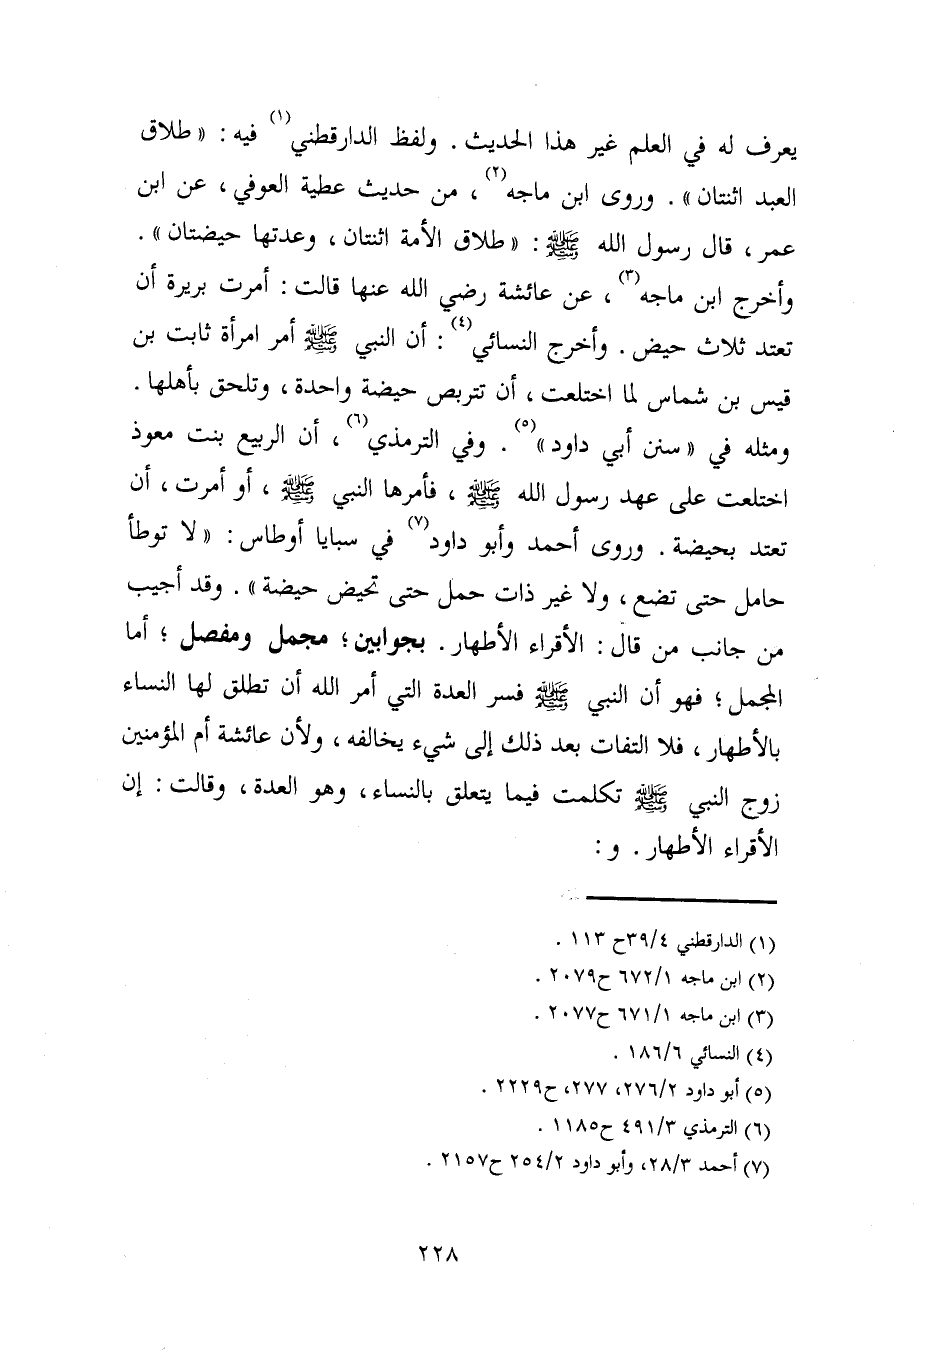 يعرف له في العلم غير هذا الحديث . ولفظ الدارقطني(١) فيه : « طلاق
العبد اثنتان » . وروى ابن ماجه(٢) ، من حديث عطية العوفي ، عن ابن
عمر ، قال رسول الله ﷺ : « طلاق الأمة اثنتان ، وعدتها حيضتان » .
وأخرج ابن ماجه(٣) ، عن عائشة رضي الله عنها قالت : أمرت بريرة أن
تعتد ثلاث حيض . وأخرج النسائي(٤) : أن النبي ﷺ أمر امرأة ثابت بن
قيس بن شماس لما اختلعت ، أن تتربص حيضة واحدة ، وتلحق بأهلها .
ومثله في « سنن أبي داود »(٥) . وفي الترمذي(٦) ، أن الربيع بنت معوذ
اختلعت على عهد رسول الله ﷺ ، فأمرها النبي ﷺ ، أو أمرت ، أن
تعتد بحيضة . وروى أحمد وأبو داود(٧) في سبايا أوطاس : « لا توطأ
حامل حتى تضع ، ولا غير ذات حمل حتى تحيض حيضة » . وقد أجيب
من جانب من قال : الأقراء الأطهار . بجوابين ؛ مجمل ومفصل ؛ أما
المجمل ؛ فهو أن النبي ﷺ فسر العدة التي أمر الله أن تطلق لها النساء
بالأطهار ، فلا التفات بعد ذلك إلى شيء يخالفه ، ولأن عائشة أم المؤمنين
زوج النبي ﷺ تكلمت فيما يتعلق بالنساء ، وهو العدة ، وقالت : إن
الأقراء الأطهار . و :
(١) الدارقطني ٣٩/٤ح ١١٣ .
(٢) ابن ماجه ٦٧٢/١ ح٢٠٧٩ .
(٣) ابن ماجه ٦٧١/١ ح٢٠٧٧ .
(٤) النسائي ١٨٦/٦ .
(٥) أبو داود ٢٧٦/٢، ٢٧٧، ح٢٢٢٩ .
(٦) الترمذي ٤٩١/٣ ح١١٨٥ .
(٧) أحمد ٢٨/٣، وأبو داود ٢٥٤/٢ ح٢١٥٧ .
٢٢٨